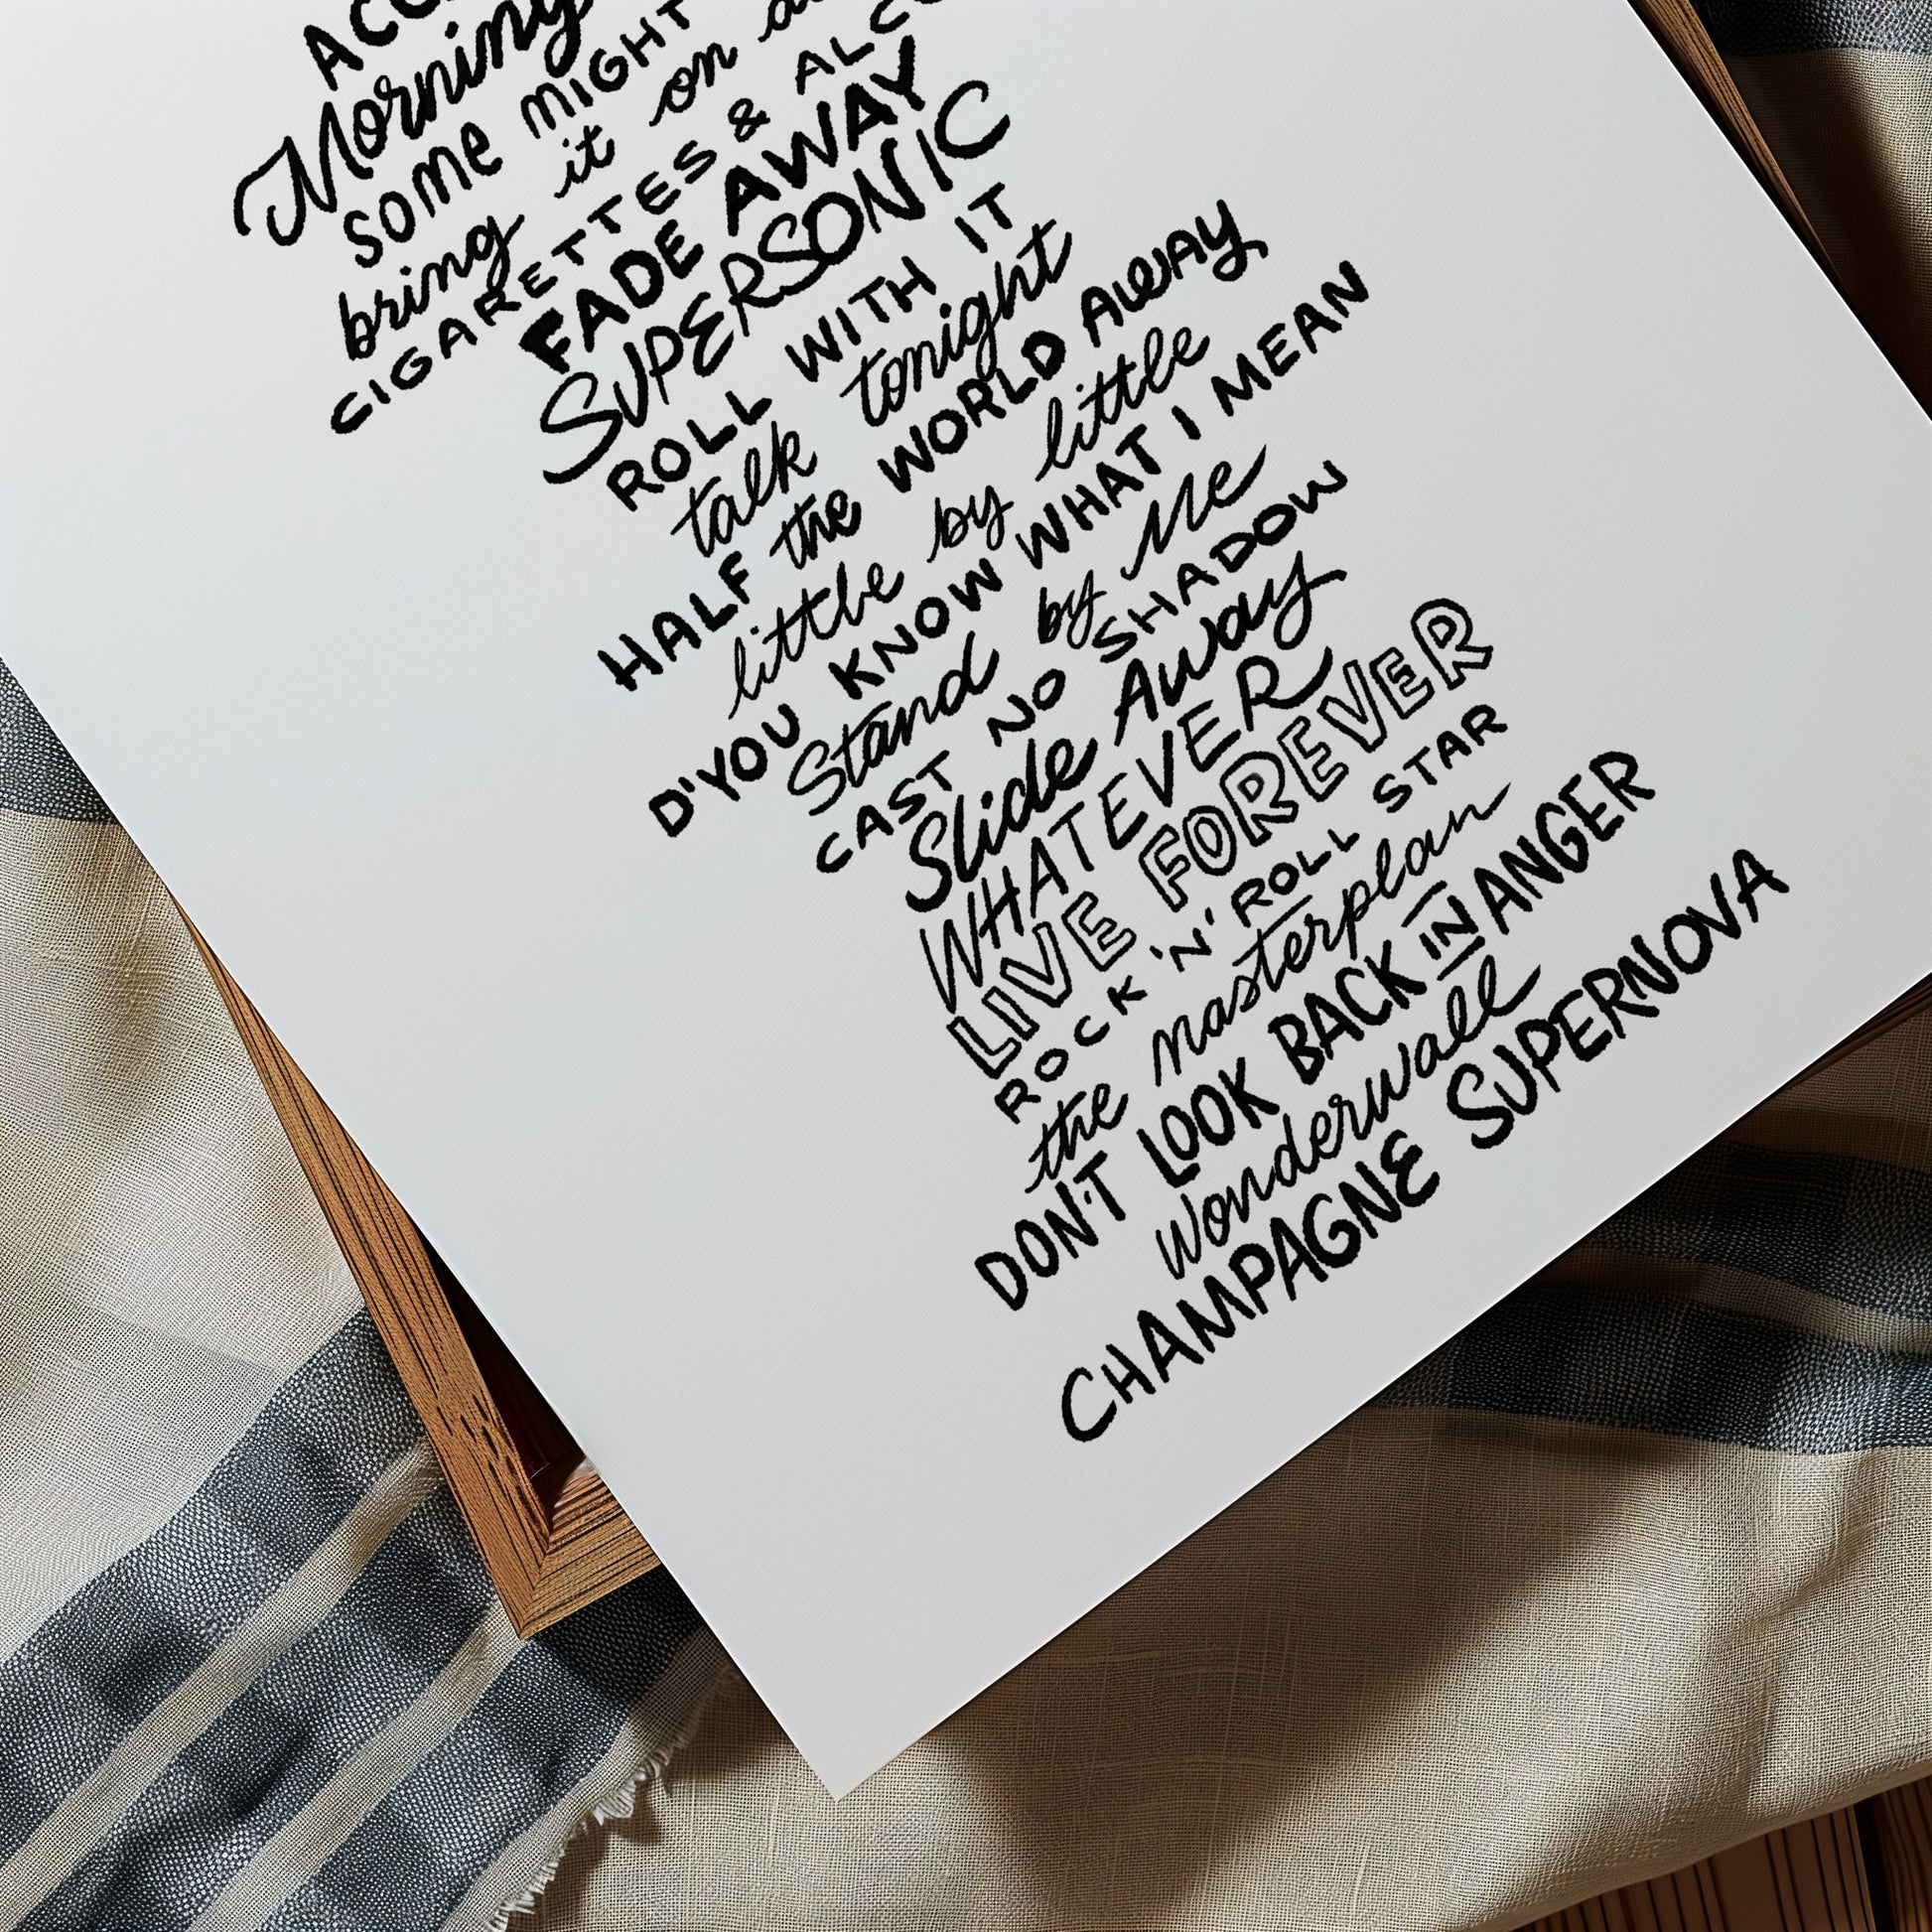 Morning
SOME MIGHT
bring it on
CIGARETTES &
FADE AWAY
SUPERSONIC
ROLL WITH IT
talk tonight
HALF the WORLD AWAY
little by little
D'YOU KNOW WHAT I MEAN
Stand by Me
CAST NO SHADOW
Slide Away
WHATEVER
LIVE FOREVER
ROCK 'N' ROLL STAR
the masterplan
DON'T LOOK BACK IN ANGER
wonderwall
CHAMPAGNE SUPERNOVA